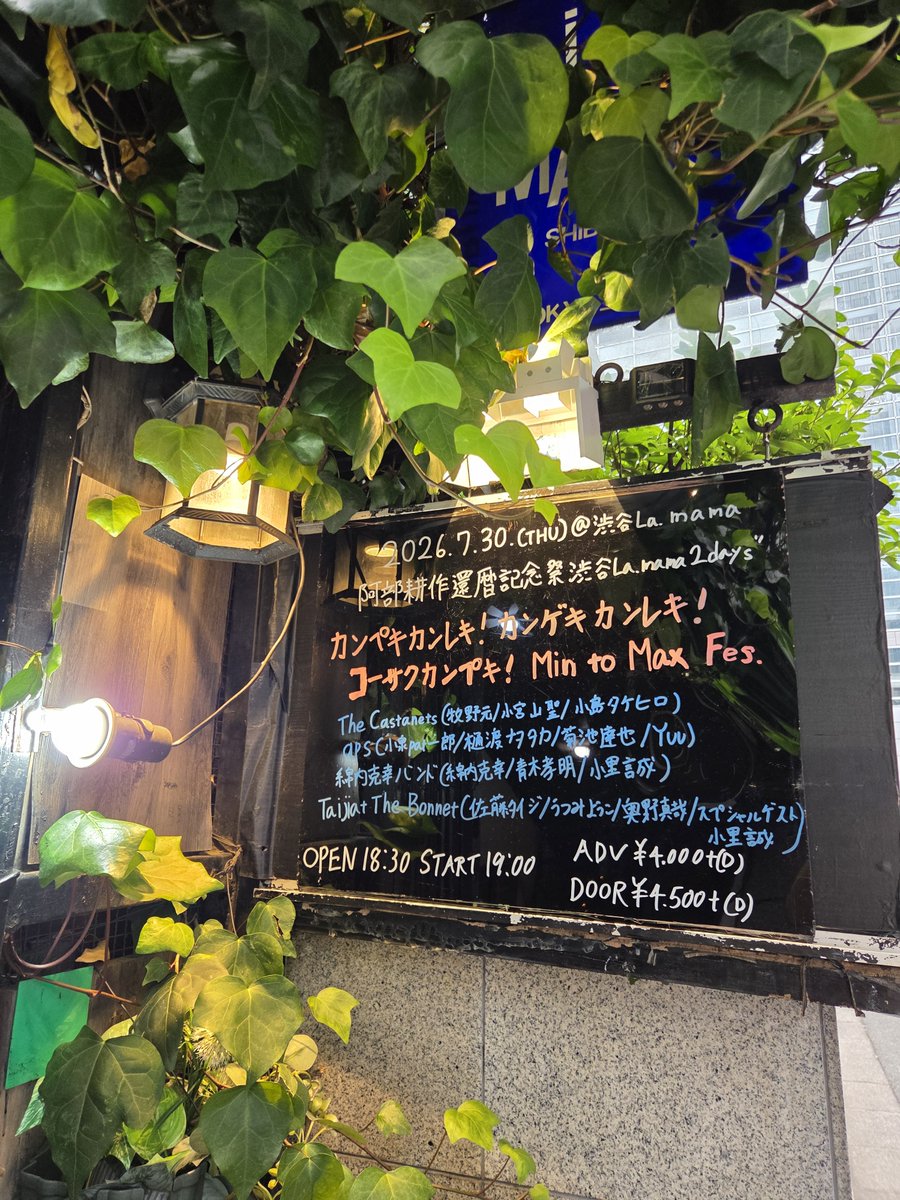 MA
SHIB
OKY
"2026.7.30.(THU)@渋谷La.mama
阿部耕作還暦記念祭渋谷La.mama 2days"
カンペキカンレキ!カンゲキカンレキ!
コーサクカンペキ! Min to Max Fes.
The Castanets(牧野元/小宮山聖/小島タケヒロ)
aps(小泉pat一郎/樋渡ナタカ/菊池達也/Yuu)
綿内克幸バンド(綿内克幸/青木孝明/小里誠)
Taijiat The Bonnet(佐藤タイジ/うつみようこ/奥野真哉/スペシャルゲスト
小里誠)
OPEN 18:30 START 19:00
ADV ¥4.000+(D)
DOOR ¥4.500+(D)